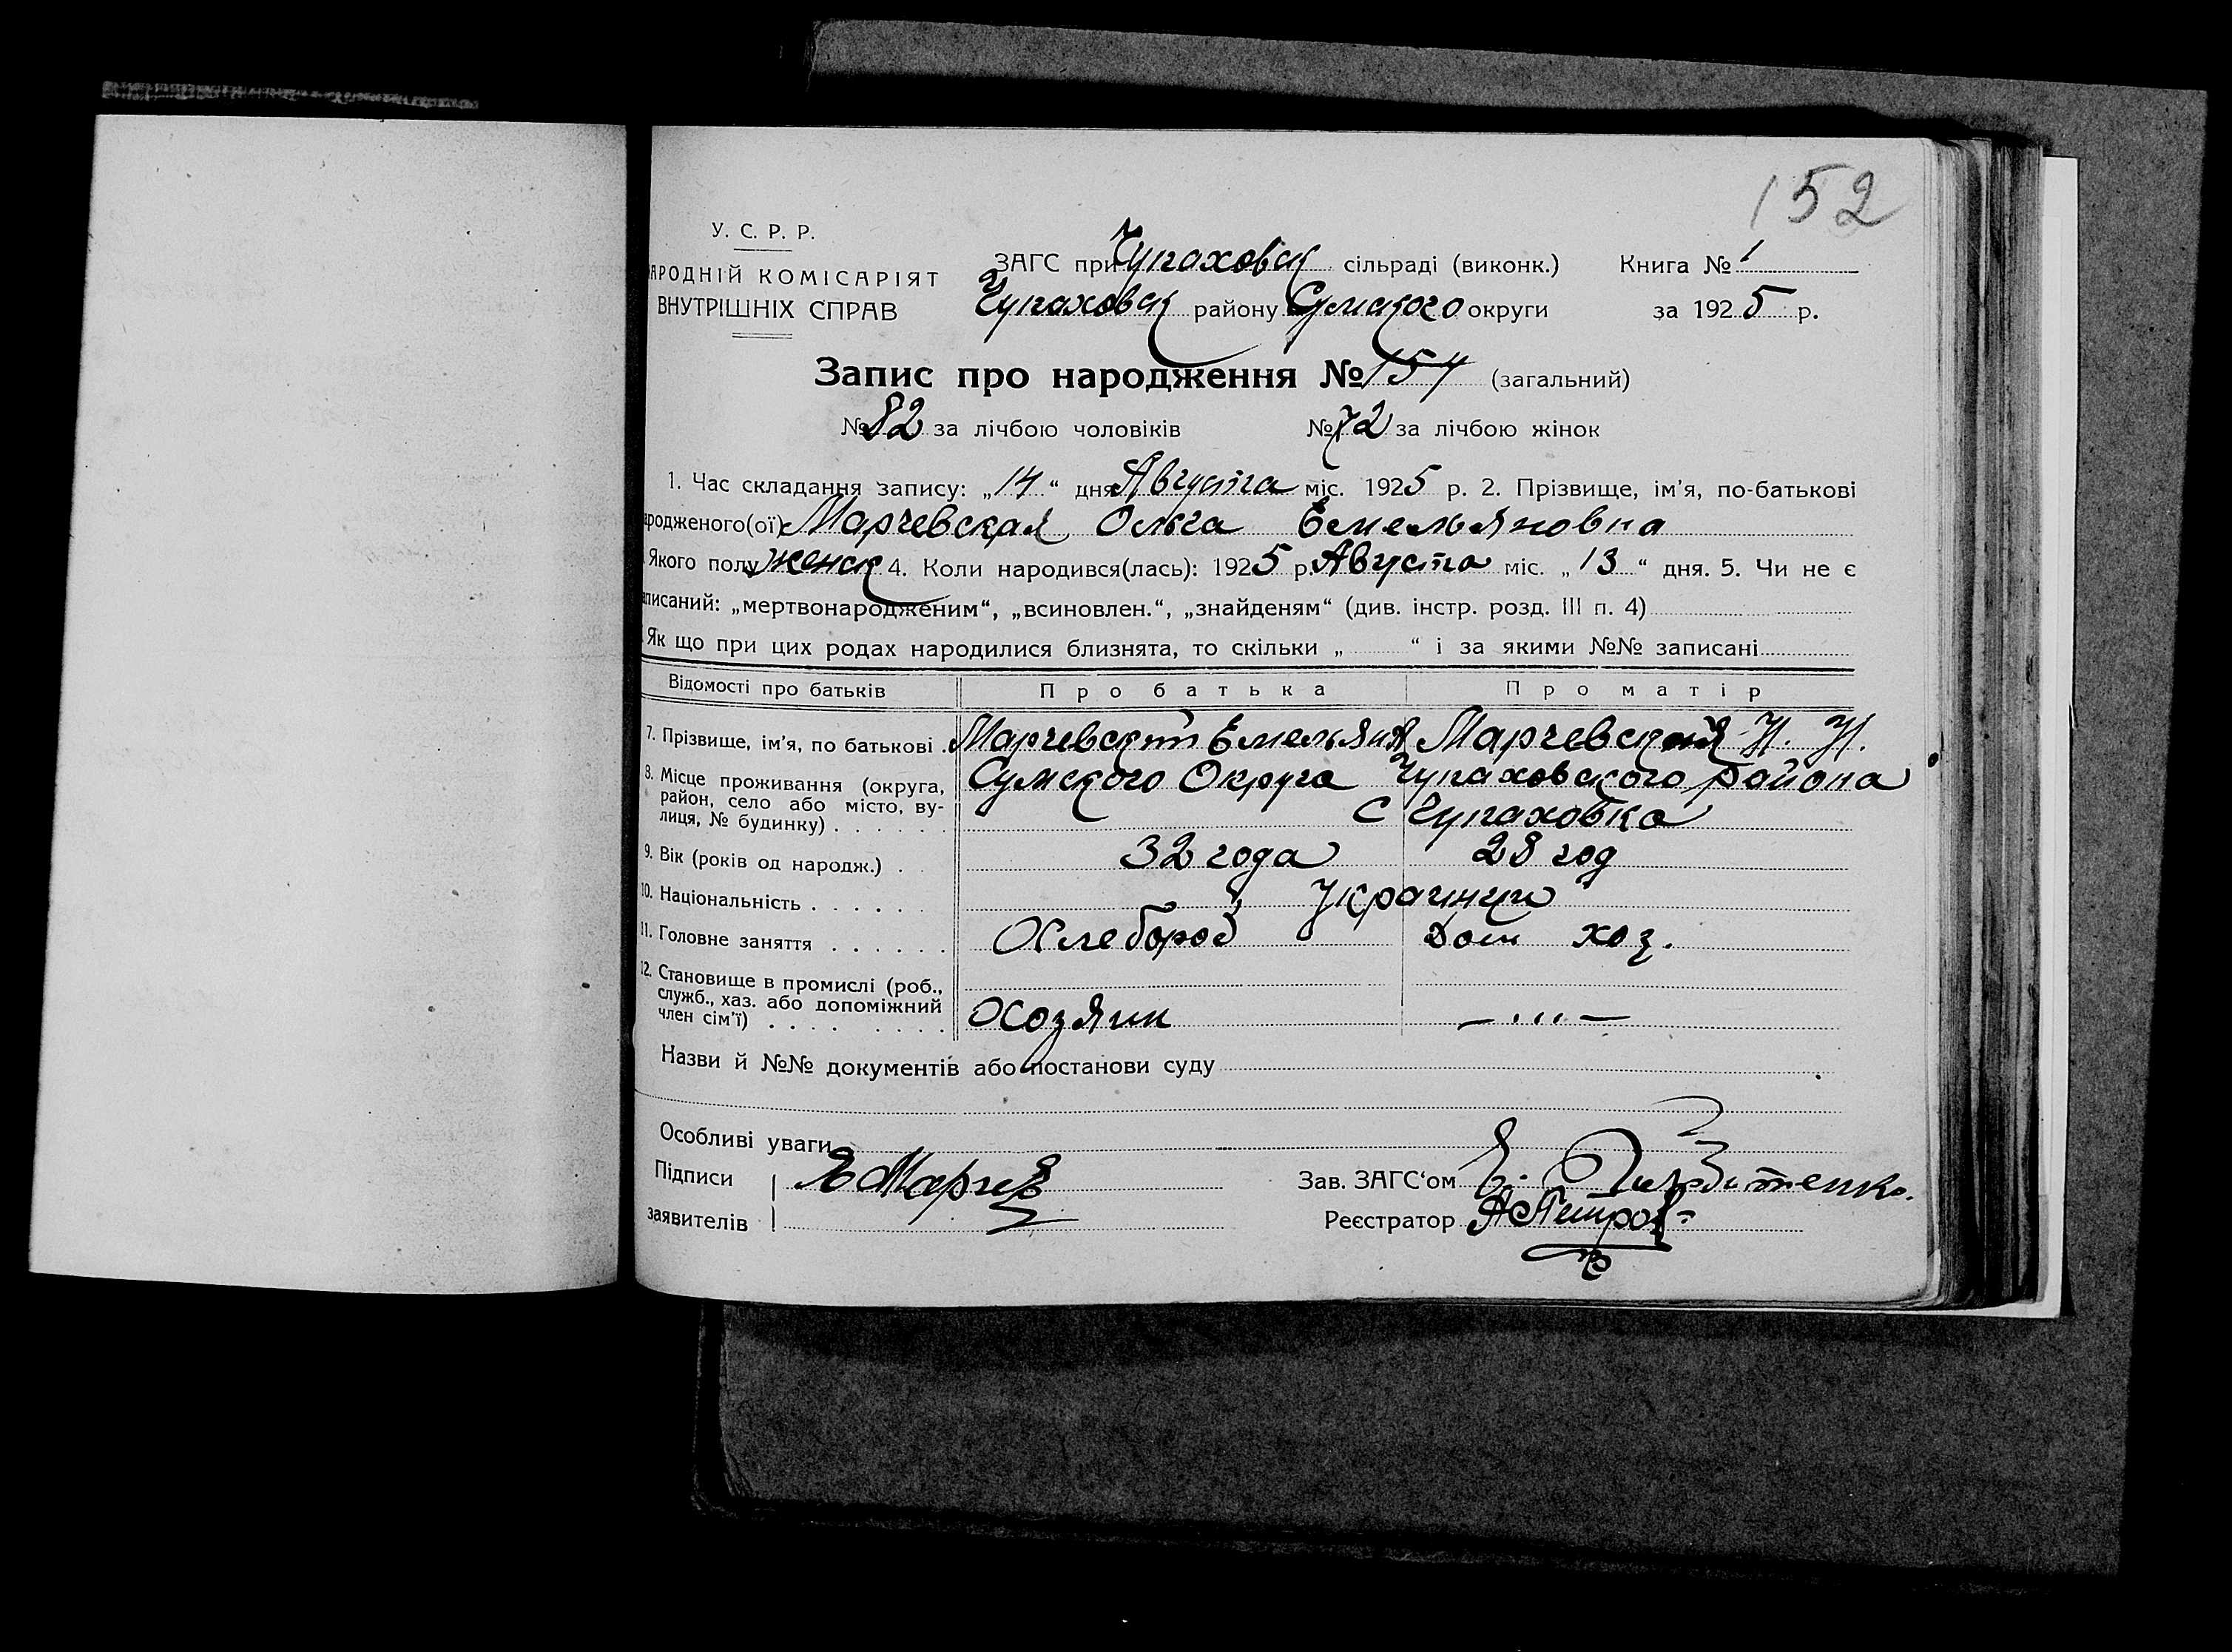 152
У. С. Р. Р.
АРОДНІЙ КОМІСАРІЯТ
ВНУТРІШНІХ СПРАВ
ЗАГС при Чупаховск сільраді (виконк.) Книга № 1
Чупаховск району Сумского округи за 1925 р.
Запис про народження № 154 (загальний)
№ 82 за лічбою чоловіків № 72 за лічбою жінок
1. Час складання запису: „14“ дня Августа міс. 1925 р. 2. Прізвище, ім’я, по-батькові
ародженого(ої) Марчевская Ольга Емельяновна
Якого полу женск 4. Коли народився(лась): 1925 р. Августа міс. „13“ дня. 5. Чи не є
аписаний: „мертвонародженим“, „всиновлен.“, „знайденям“ (див. інстр. розд. III п. 4)
Як що при цих родах народилися близнята, то скільки „ “ і за якими №№ записані
Відомості про батьків Про батька Про матір
7. Прізвище, ім’я, по батькові . Марчевский Емельян Марчевская Н. Н.
8. Місце проживання (округа, район, село або місто, ву-
лиця, № будинку) . . . . . .
Сумского Округа Чупаховского района
с Чупаховка
9. Вік (років од народж.) . . 32 года 28 год
10. Національність . . . . . . Украинци
11. Головне заняття . . . . . . Хлебороб Дом хоз.
12. Становище в промислі (роб.,
служб., хаз. або допоміжний
член сім’ї) . . . . . . . . Хозяин —...—
Назви й №№ документів або постанови суду
Особливі уваги
Підписи
заявителів
Зав. ЗАГС‘ом
Реєстратор А Петров